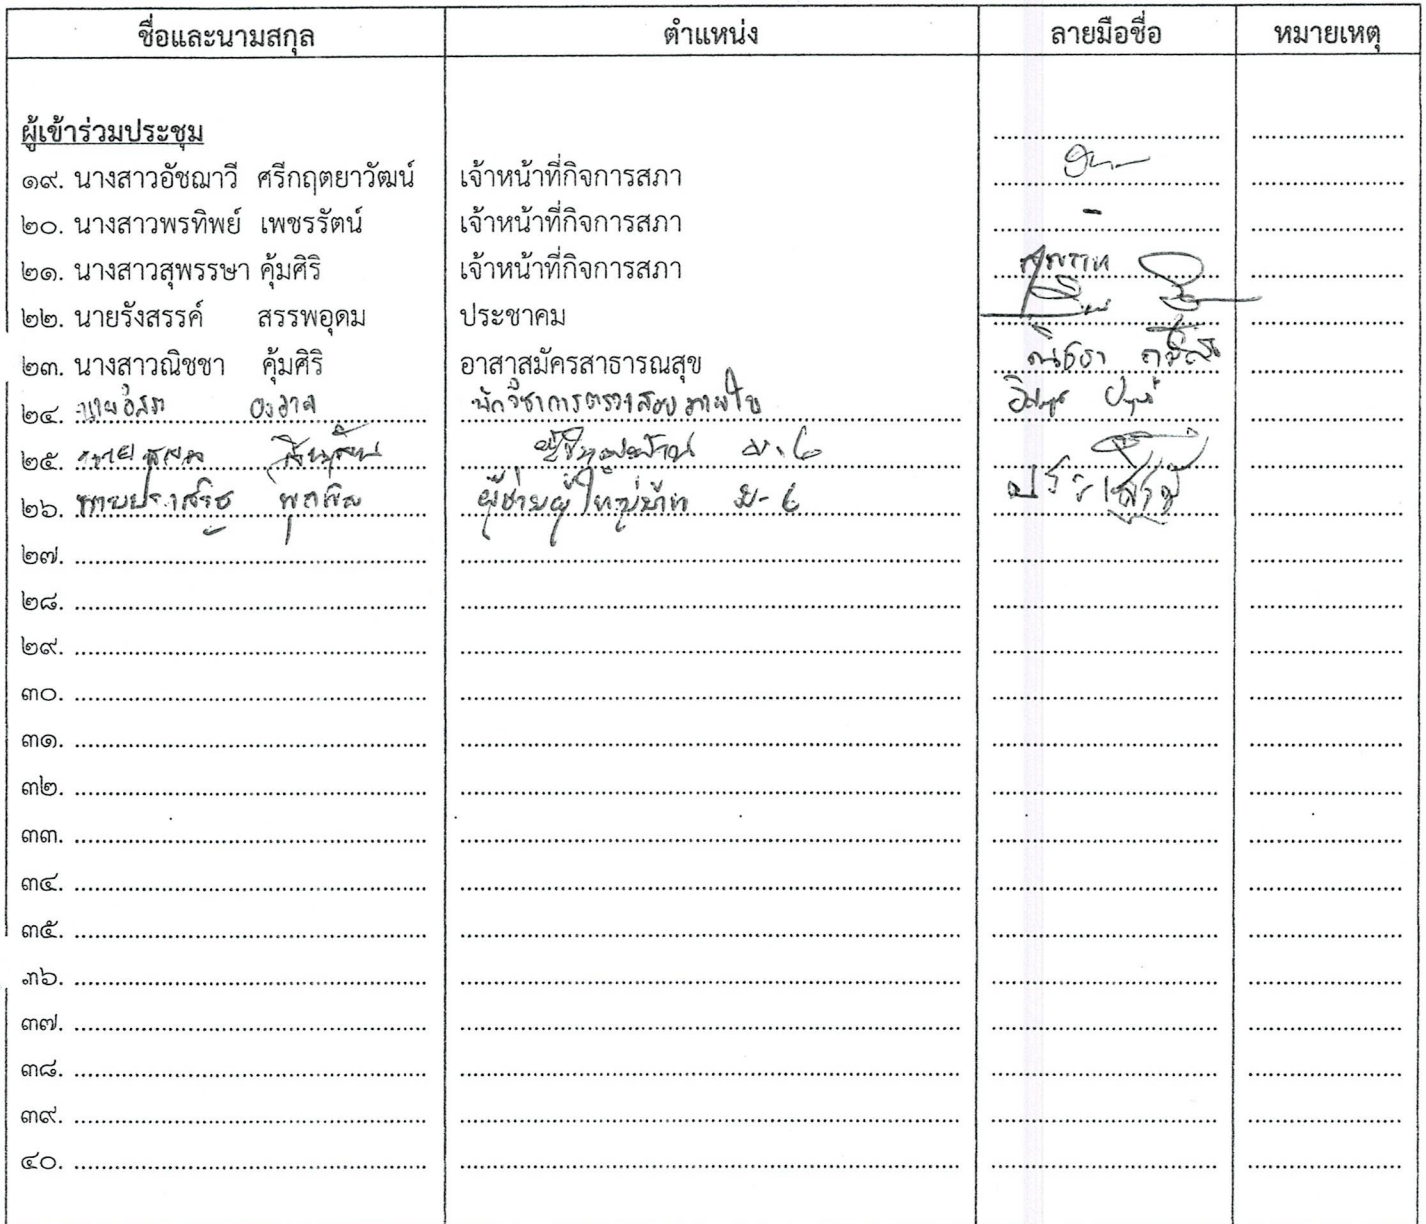 ชื่อและนามสกุล ตำแหน่ง ลายมือชื่อ หมายเหตุ
ผู้เข้าร่วมประชุม
๑๙. นางสาวอัชฌาวี ศรีกฤตยาวัฒน์ เจ้าหน้าที่กิจการสภา
๒๐. นางสาวพรทิพย์ เพชรรัตน์ เจ้าหน้าที่กิจการสภา -
๒๑. นางสาวสุพรรษา คุ้มศิริ เจ้าหน้าที่กิจการสภา
๒๒. นายรังสรรค์ สรรพอุดม ประชาคม
๒๓. นางสาวณิชชา คุ้มศิริ อาสาสมัครสาธารณสุข ณิชชา
๒๔. นักวิชาการตรวจสอบภายใน
๒๕. นาย
๒๖. ผู้ช่วยผู้ใหญ่บ้าน ม-๖ ประเสริฐ
๒๗.
๒๘.
๒๙.
๓๐.
๓๑.
๓๒.
๓๓.
๓๔.
๓๕.
๓๖.
๓๗.
๓๘.
๓๙.
๔๐.